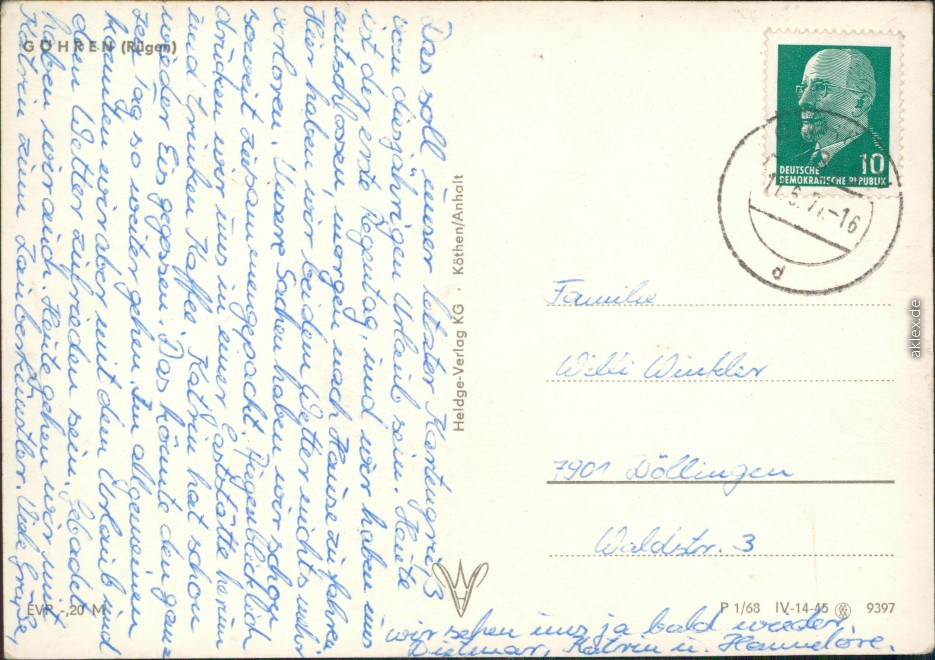 GÖHREN (Rügen)
Das soll unser letzter Kartengruß
von diesjährigen Urlaub sein. Heute
ist der erste Regentag, und wir haben uns
entschlossen, morgen nach Hause zu fahren.
Hier haben wir bei dem Wetter nichts mehr
verloren. Unsere Sachen haben wir schon
soweit zusammengepackt. Augenblicklich
drücken wir uns in einer Gaststätte herum
und trinken Kaffee. Katrin hat schon
wieder Eis gegessen. Das könnte den gan-
zen Tag so weiter gehen. Im allgemeinen
konnten wir aber mit dem Urlaub und
dem Wetter zufrieden sein. Gebadet
haben wir auch. Heute gehen wir mit
Katrin zum Zauberkünstler. Viele Grüße,
wir sehen uns ja bald wieder,
Dietmar, Katrin u. Hannelore.
Heldge-Verlag KG · Köthen/Anhalt
DEUTSCHE
DEMOKRATISCHE REPUBLIK
10
-16
d
Familie
Willi Winkler
7901 Döllingen
Waldstr. 3
EVP -,20 M
P 1/68 IV-14-45 9397
aklex.de